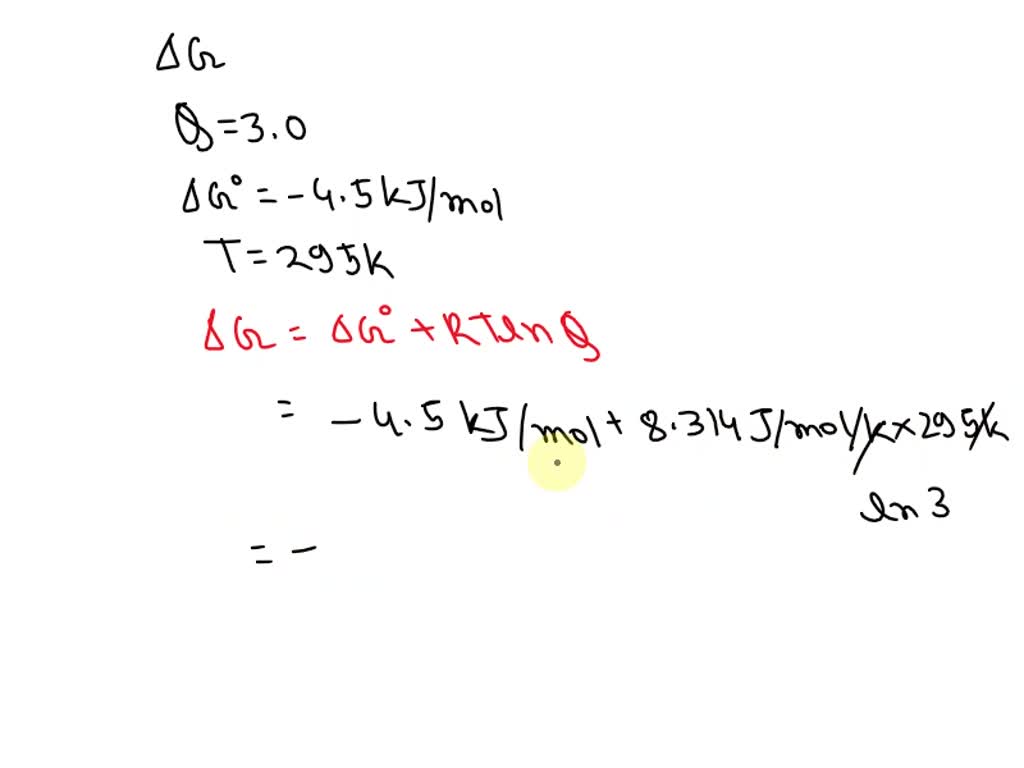 ΔG
Q=3.0
ΔG° = -4.5kJ/mol
T=295k
ΔG = ΔG° + RTlnQ
= -4.5 kJ/mol + 8.314 J/mol/k×295k
ln 3
= -